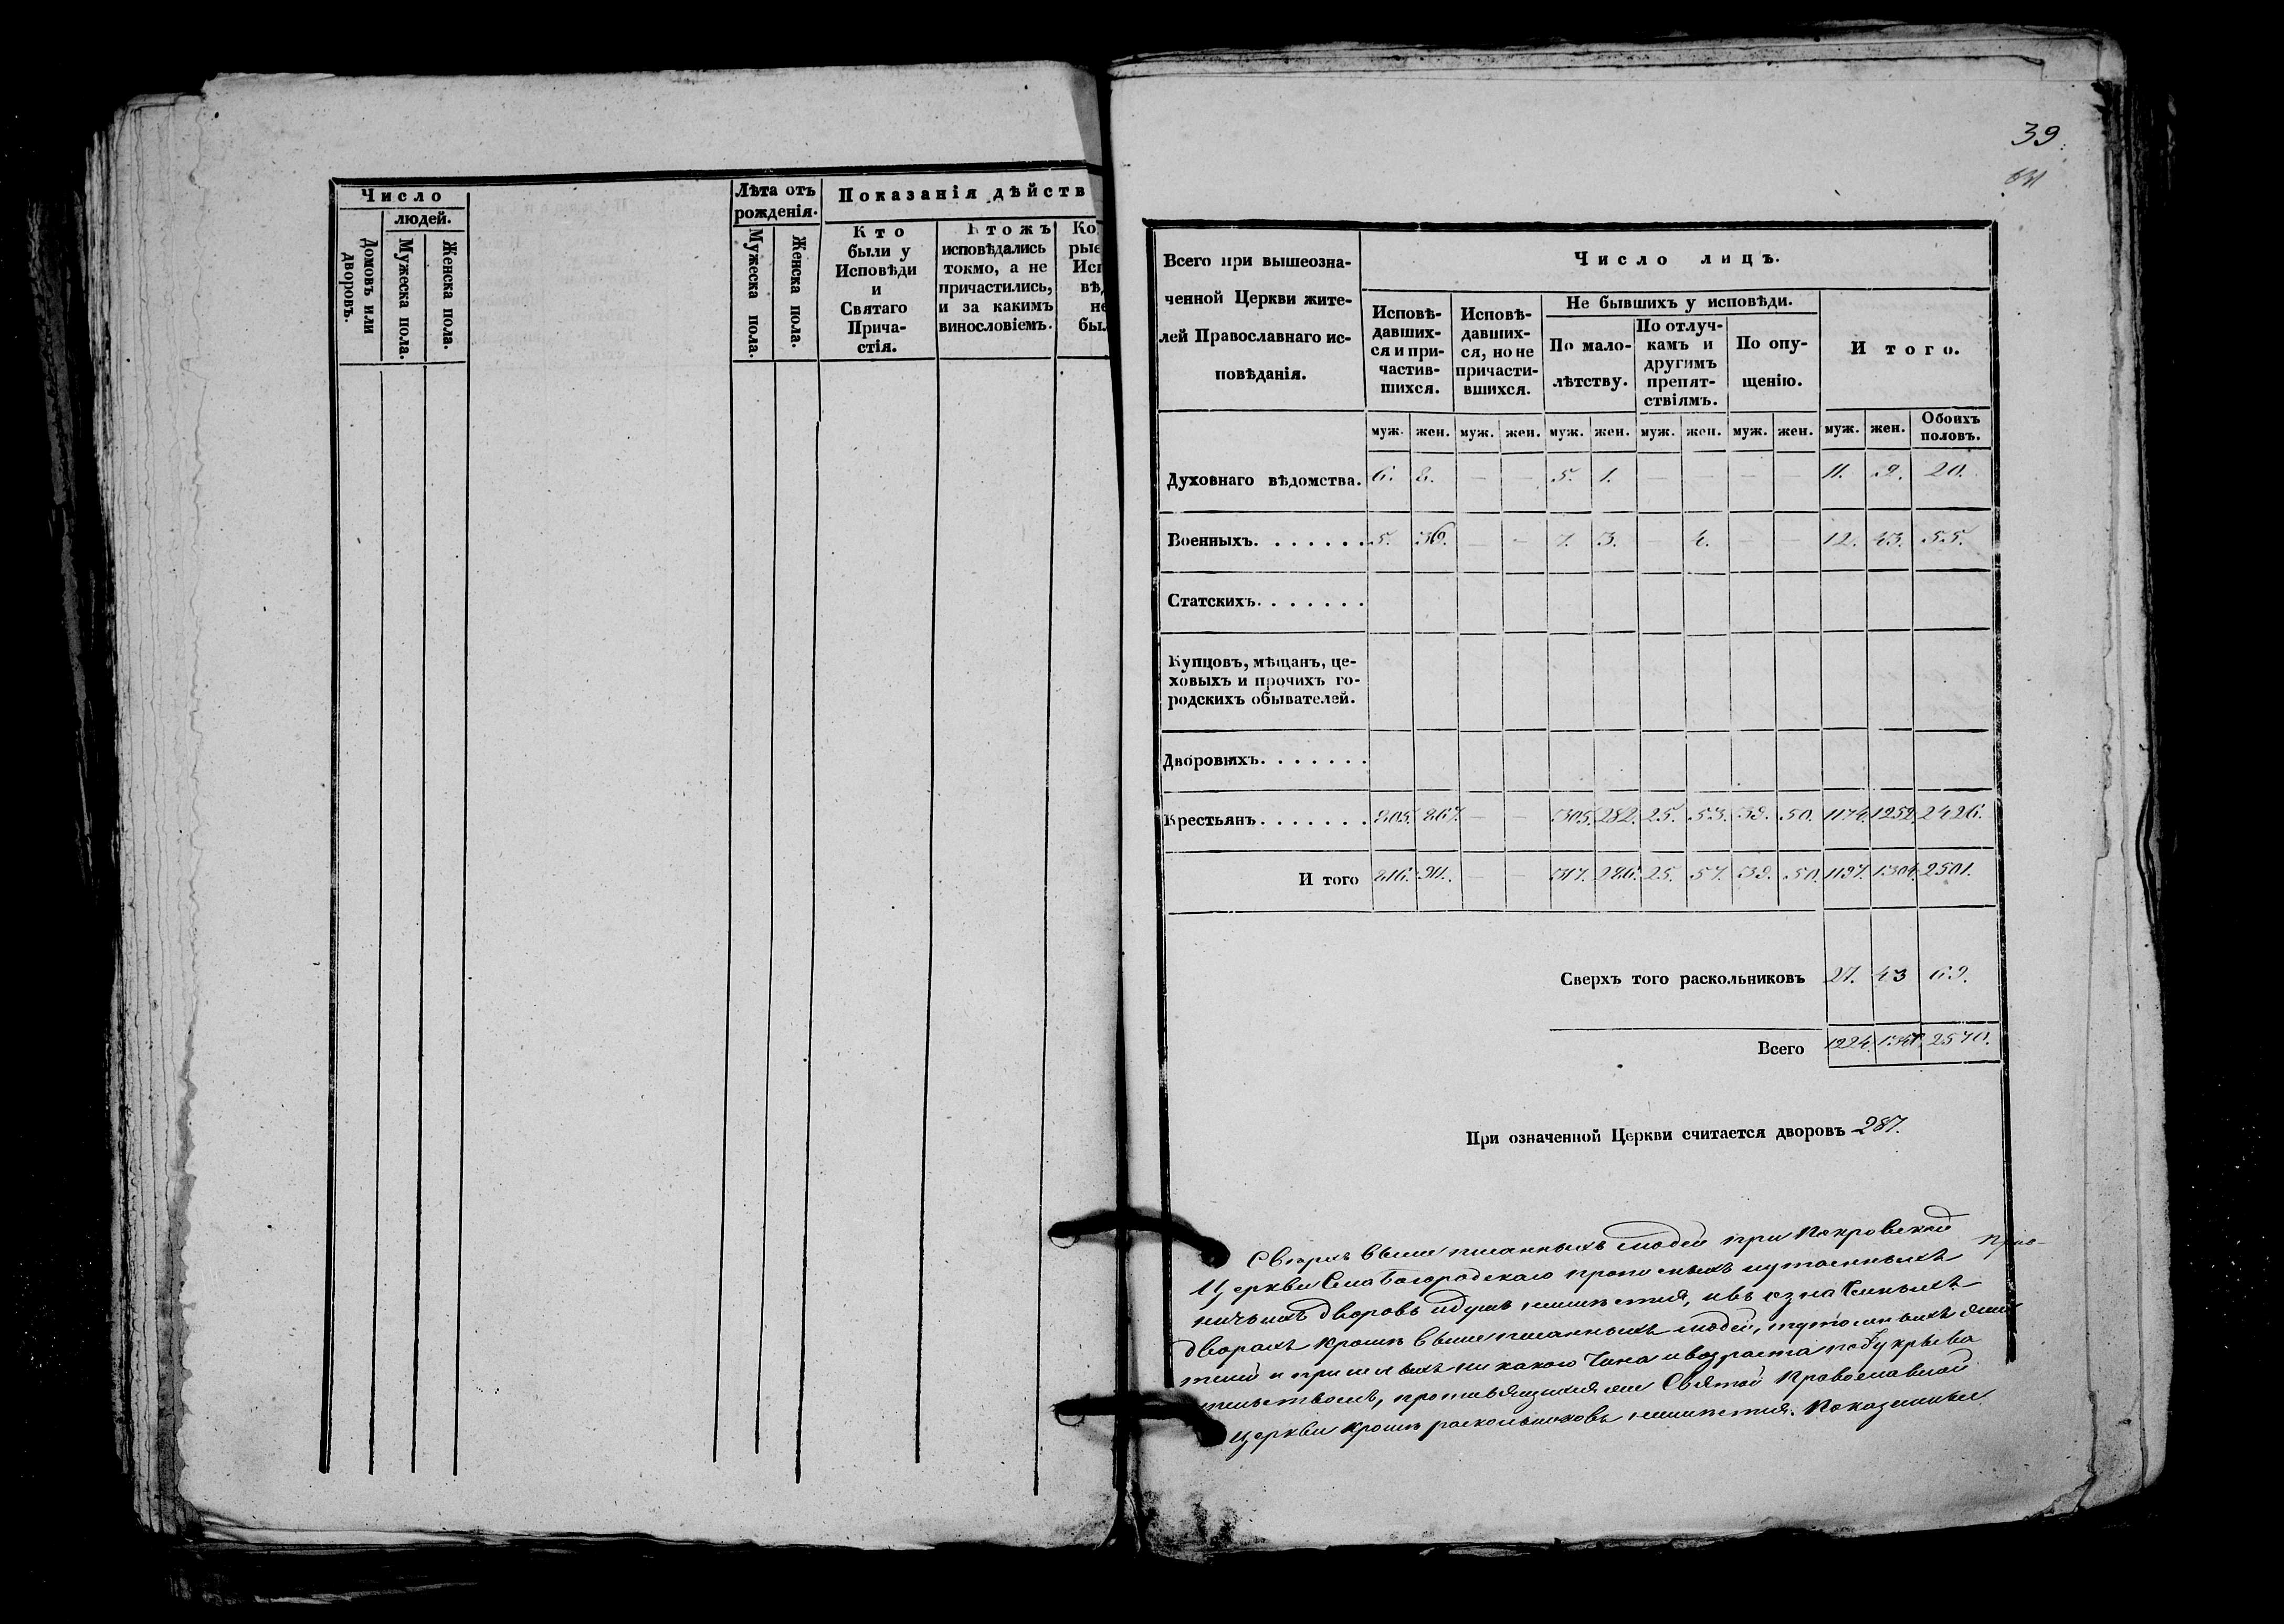 Число
людей.
Домовъ или дворовъ.
Мужеска пола.
Женска пола.
Лѣта отъ
рожденія.
Мужеска пола.
Женска пола.
Показанія дѣйств
Кто
были у
Исповѣди
и
Святаго
Прича-
стія.
Ктожъ
исповѣдались
токмо, а не
причастились,
и за какимъ
винословіемъ.
Ко
рые
Исп
вѣ
не
был
39.
Всего при вышеозна-
ченной Церкви жите-
лей Православнаго ис-
повѣданія.
Число лицъ.
Исповѣ-
давших-
ся и при-
частив-
шихся.
Исповѣ-
давших-
ся, но не
причасти-
вшихся.
Не бывшихъ у исповѣди.
По мало-
лѣтству.
По отлуч-
камъ и
другимъ
препят-
ствіямъ.
По опу-
щенію.
Итого.
муж. жен. муж. жен. муж. жен. муж. жен. муж. жен. муж. жен. Обоихъ
половъ.
Духовнаго вѣдомства. 6. 8. — — 5. 1. — — — — 11. 9. 20.
Военныхъ. . . . . . . 5. 36. — — 7. 3. — 4. — — 12. 43. 55.
Статскихъ. . . . . . .
Купцовъ, мѣщанъ, це-
ховыхъ и прочихъ го-
родскихъ обывателей.
Дворовыхъ. . . . . . .
Крестьянъ. . . . . . . 805. 867. — — 305. 282. 25. 53. 39. 50. 1174. 1252. 2426.
И того 816. 911. — — 317. 286. 25. 57. 39. 50. 1197. 1304. 2501.
Сверхъ того раскольниковъ 27. 43 69.
Всего 1224. 2570.
При означенной Церкви считается дворовъ 287.
Сверхъ вышеписанныхъ людей при Покровской
Церкви Села Богородскаго прописныхъ и утаенныхъ
дворовъ и душъ неимѣется, и въ означенныхъ
дворахъ кромѣ вышеписанныхъ людей,
и пришлыхъ ни какого чина и возраста подъ укрыва
тельствомъ, противящихся Святой Православной
Церкви кромѣ раскольниковъ неимѣется. Показанныя